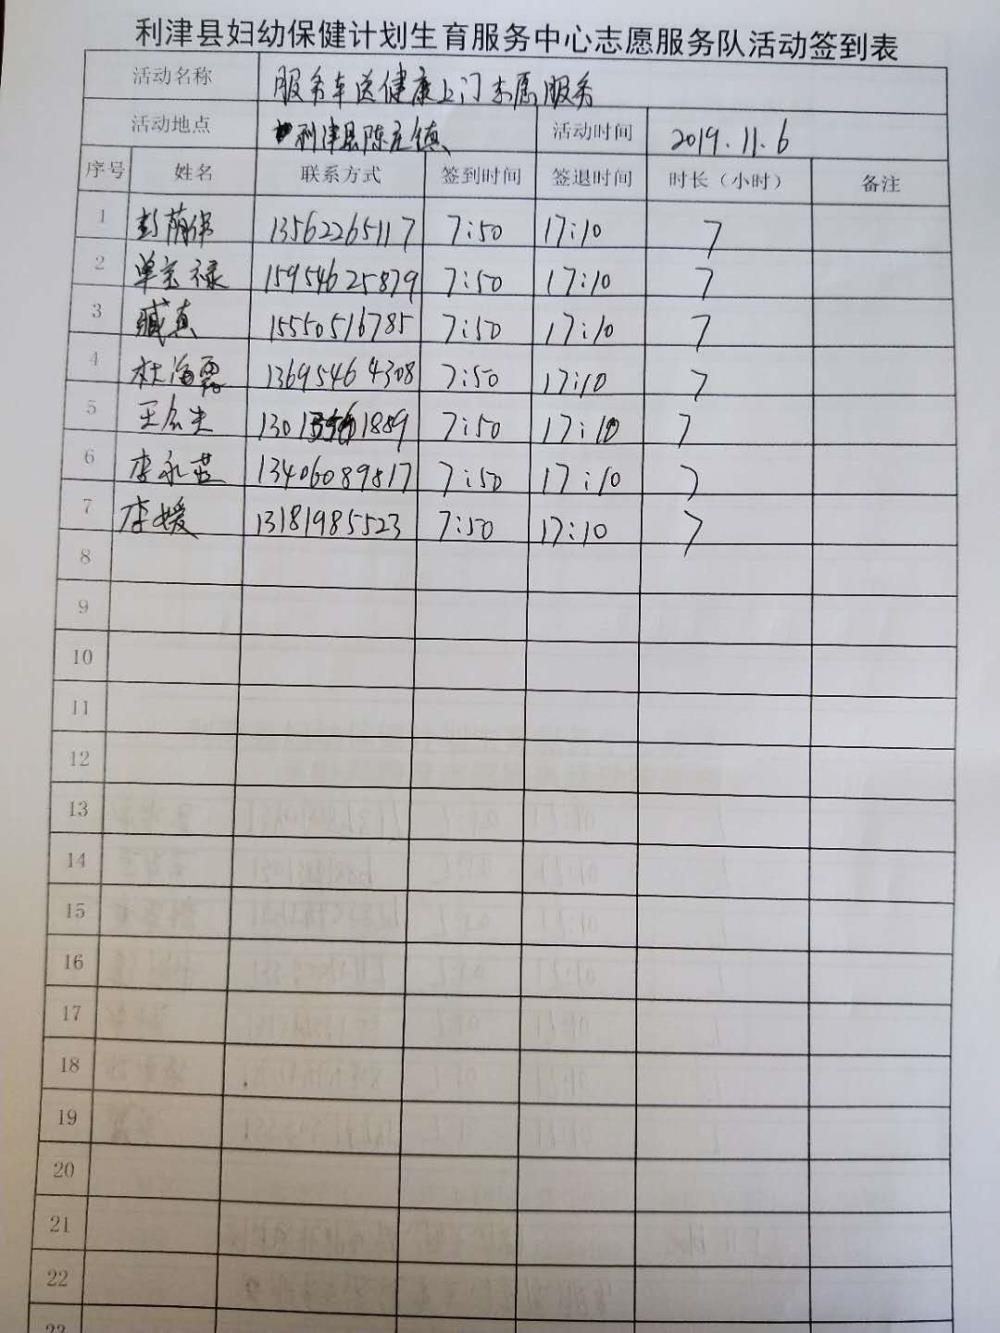 利津县妇幼保健计划生育服务中心志愿服务队活动签到表
活动名称 服务车送健康上门志愿服务
活动地点 利津县陈庄镇 活动时间 2019.11.6
序号 姓名 联系方式 签到时间 签退时间 时长（小时） 备注
1 彭荫 13562265117 7:50 17:10 7
2 单宝禄 15954625879 7:50 17:10 7
3 臧真 15550516785 7:50 17:10 7
4 杜海霞 13695464308 7:50 17:10 7
5 王 1301 1889 7:50 17:10 7
6 李永芸 13406089817 7:50 17:10 7
7 李媛 13181985523 7:50 17:10 7
8
9
10
11
12
13
14
15
16
17
18
19
20
21
22
23